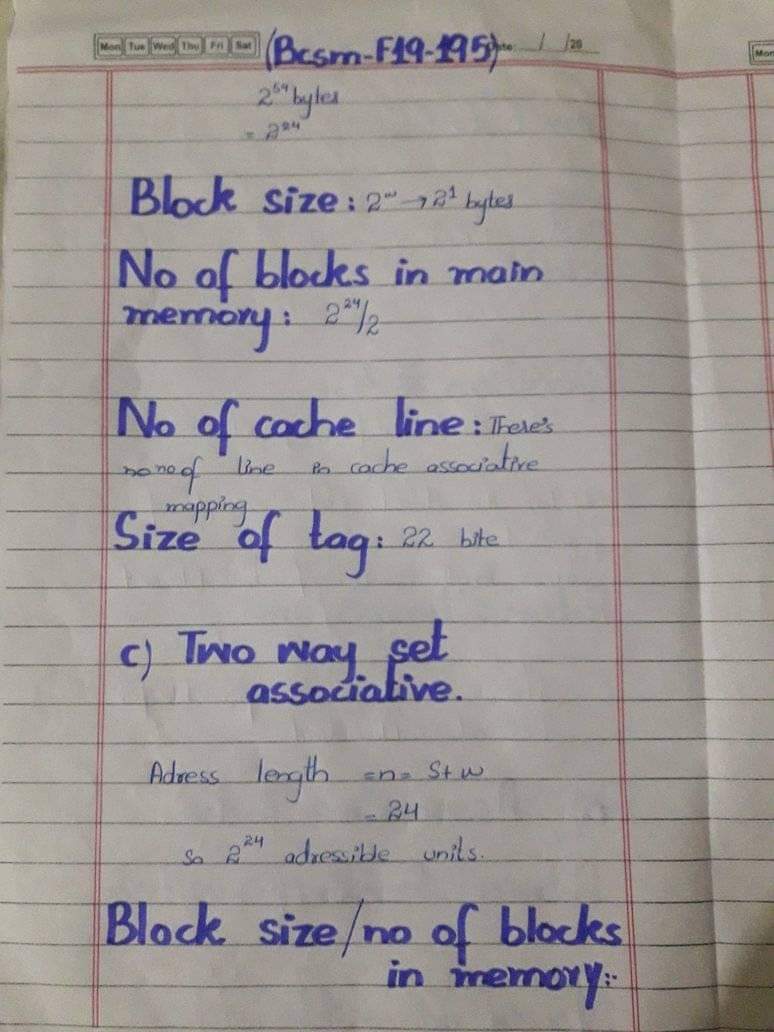 Mon Tue Wed Thu Fri Sat (Bcsm-F19-195) / /20
bytes
= 2²⁴
Block size: 2ʷ → 2¹ bytes
No of blocks in main
memory: 2²⁴/2
No of cache line: There's
no no of line in cache associative
mapping
Size of tag: 22 bite
c) Two way set
associative.
Adress length =n= S+w
= 24
So 2²⁴ adressible units.
Block size/no of blocks
in memory:-
Mon